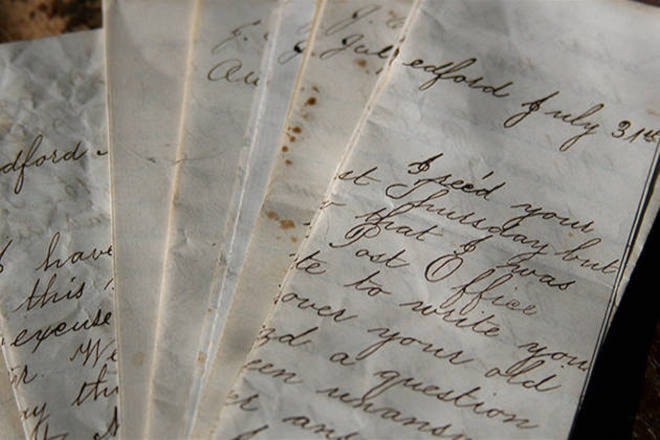 dford
I have
this
excuse
r. We
y thi
J.
Au
J.
Jul
edford July 31st
I rec'd your
st Thursday but
r that I was
Post Office
te to write you
over your old
zd a question
een unansw
er and